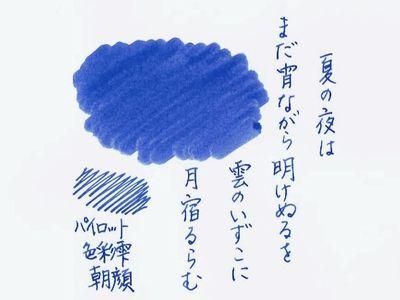 夏の夜は
まだ宵ながら明けぬるを
雲のいずこに
月宿るらむ
パイロット
色彩雫
朝顔